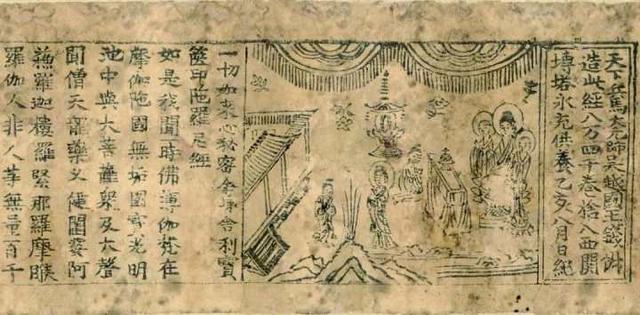 天下兵馬大元帥吳越國王錢俶
造此經八万四千卷捨入西關
塼塔永充供養乙亥八月日紀
一切如來心秘密全身舍利寶
篋印陀羅尼經
如是我聞一時佛薄伽梵在
摩伽陀國無垢園寶光明
池中與大菩薩衆及大聲
聞僧天龍藥叉健闥婆阿
蘇羅迦樓羅緊那羅摩睺
羅伽人非人等無量百千